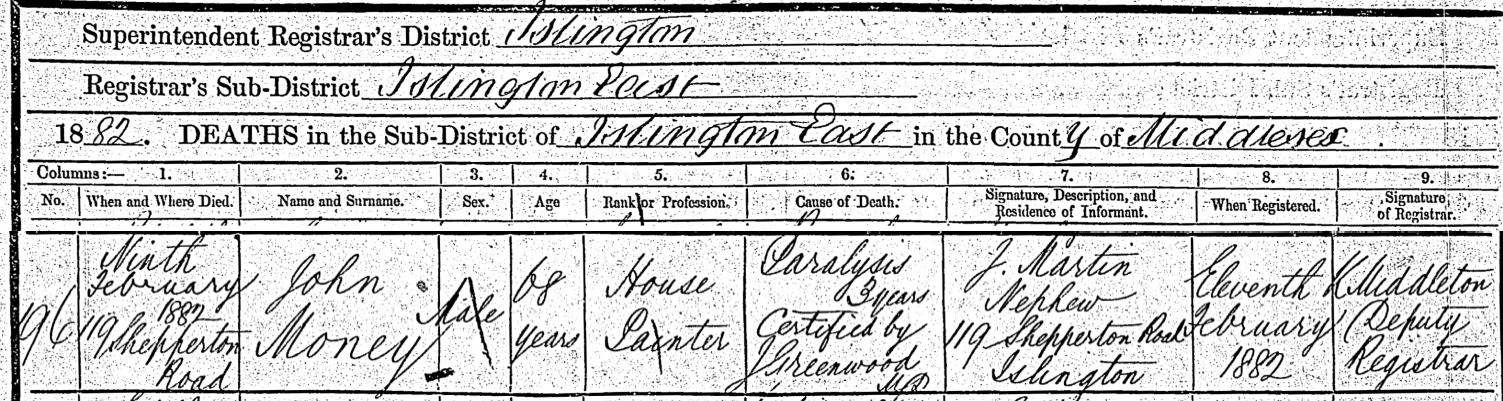 Superintendent Registrar's District Islington
Registrar's Sub-District Islington East
1882. DEATHS in the Sub-District of Islington East in the County of Middlesex.
Columns:— 1. 2. 3. 4. 5. 6. 7. 8. 9.
No. When and Where Died. Name and Surname. Sex. Age Rank or Profession. Cause of Death. Signature, Description, and Residence of Informant. When Registered. Signature of Registrar.
96
Ninth
February
1882
119 Shepperton
Road
John
Money
Male
68
years
House
Painter
Paralysis
3 years
Certified by
J Greenwood
MD
J. Martin
Nephew
119 Shepperton Road
Islington
Eleventh
February
1882
K Middleton
Deputy
Registrar